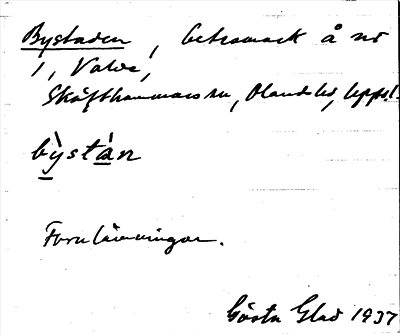 Bystaden, betesmark å nr
1, Valö,
Skäfthammars sn, Olands hd, Uppl.
bỳstàn
Fornlämningar.
Gösta Glad 1937